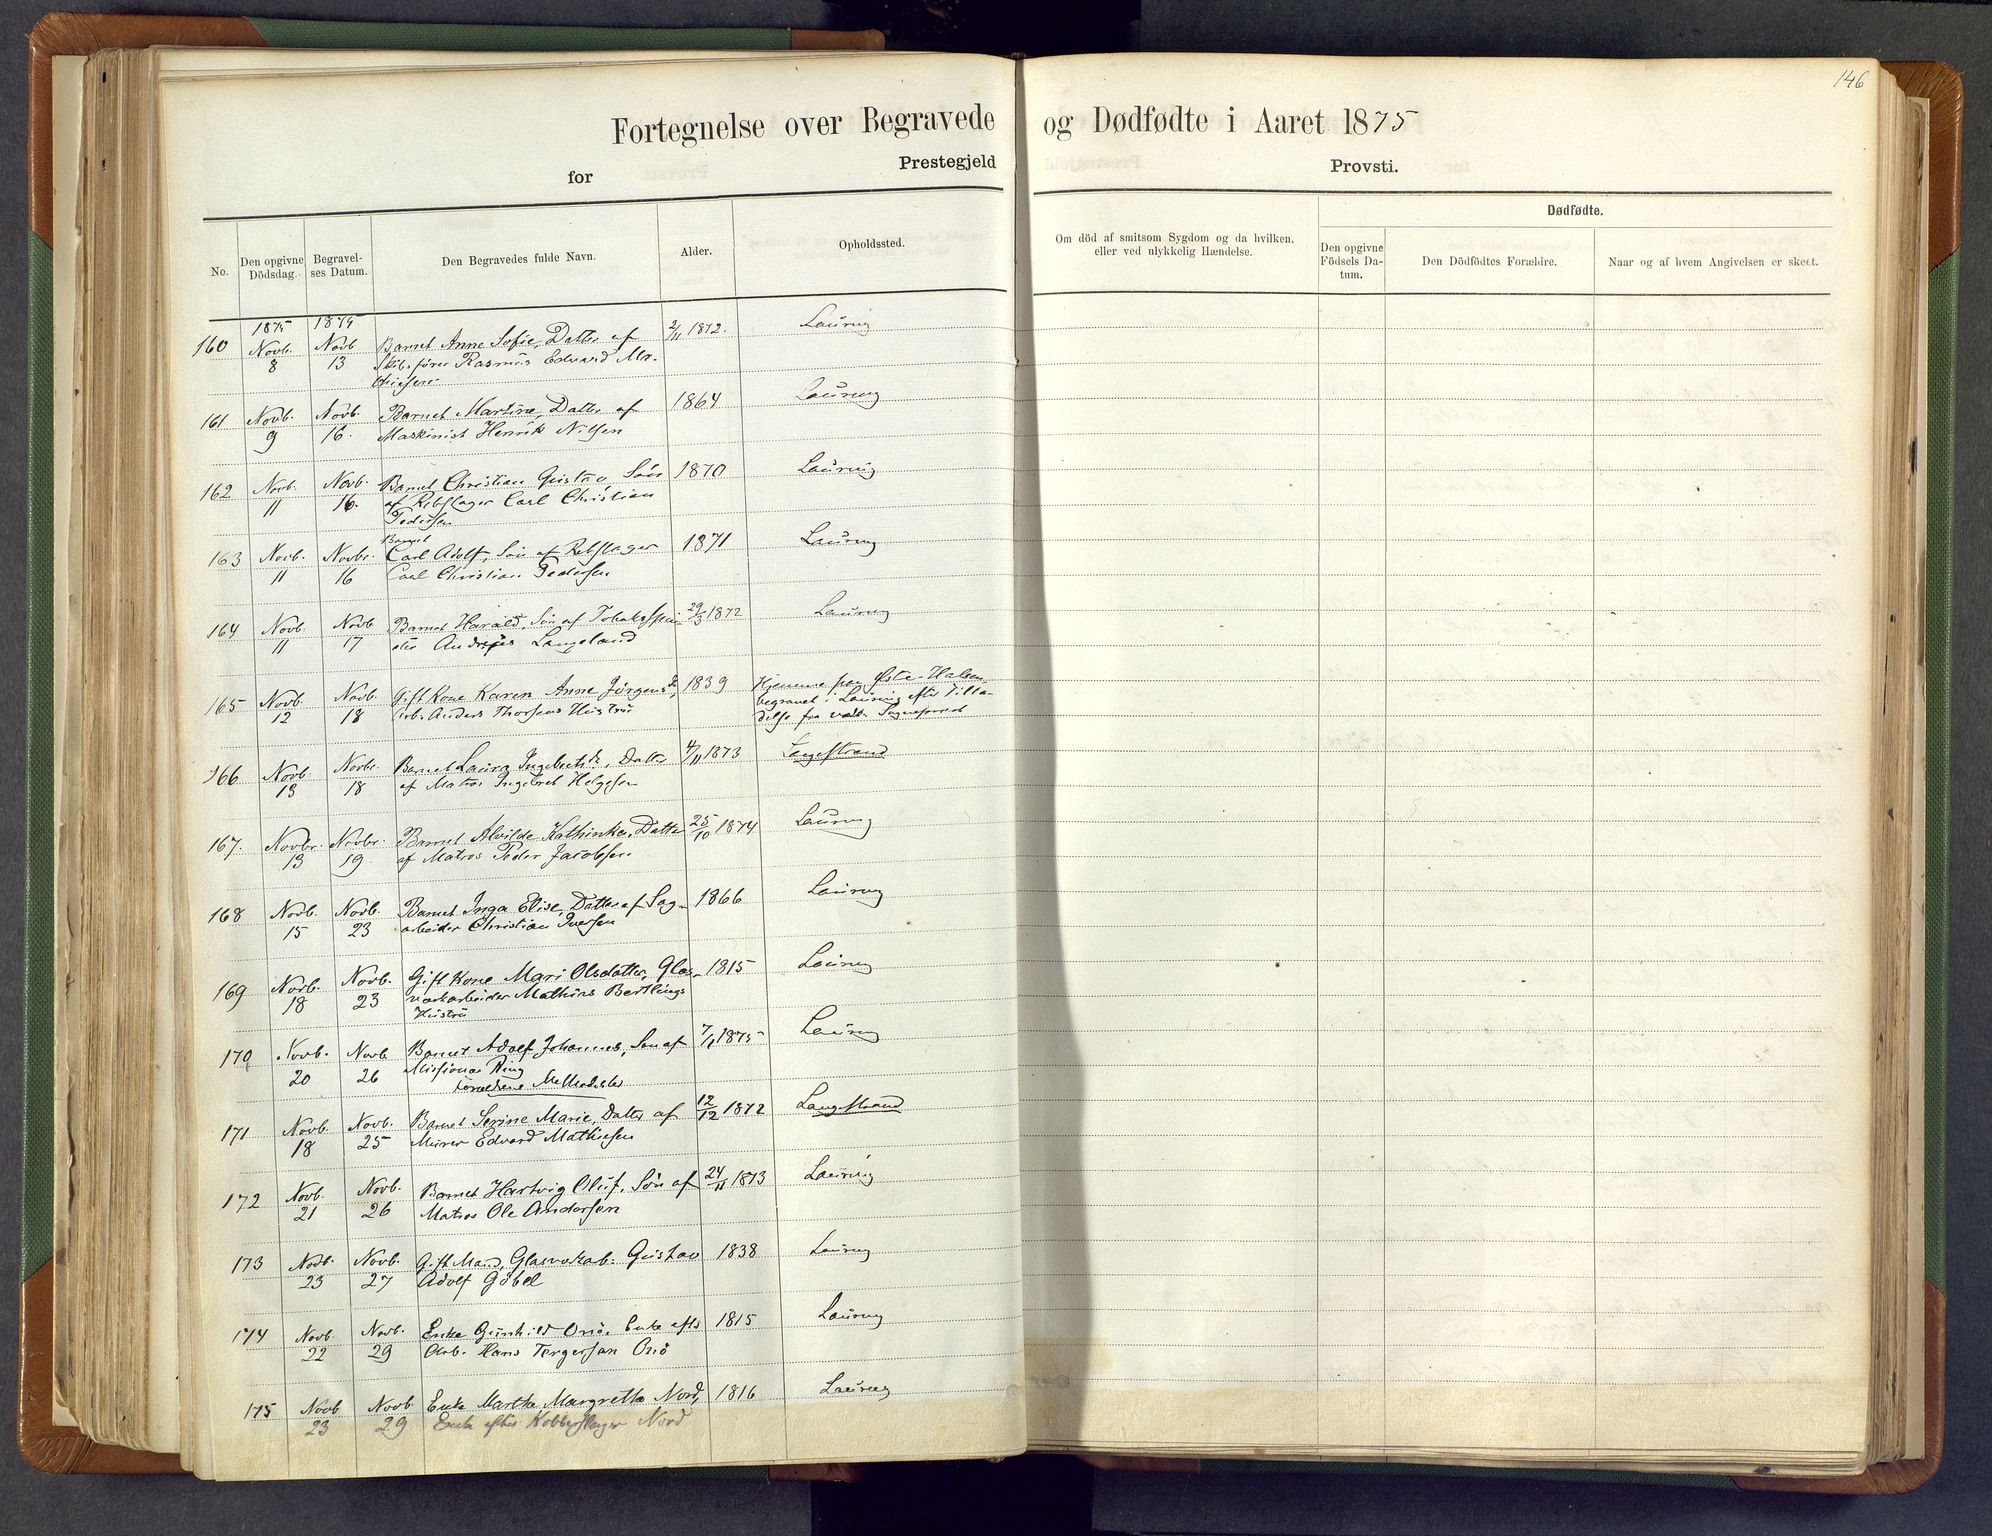 146
Fortegnelse over Begravede og Dødfødte i Aaret 1875
for Prestegjeld Provsti.
No.
Den opgivne Dödsdag.
Begravelses Datum.
Den Begravedes fulde Navn.
Alder.
Opholdssted.
Om död af smitsom Sygdom og da hvilken, eller ved ulykkelig Hændelse.
Dødfødte.
Den opgivne Födsels Datum.
Den Dödfödtes Forældre.
Naar og af hvem Angivelsen er skeet.
1875 1875
160 Novb. 8 Novb 13 Barnet Anne Sofie, Datter af 2/11 1872. Laurvig
Skibsfører Rasmus Edvard Ma-
thiesen
161 Novb. 9 Novb. 16. Barnet Martine, Datter af 1864 Laurvig
Maskinist Henrik Nilsen
162 Novb. 11 Novb. 16. Barnet Christian Gustav, Sön 1870 Laurvig
af Rebslager Carl Christian
Pedersen
Barnet
163 Novb. 11 Novbr. 16 Carl Adolf, Sön af Rebslager 1871 Laurvig
Carl Christian Pedersen
164 Novb. 11 Novb 17 Barnet Harald, Sön af Tobaksspin- 29/3 1872 Laurvig
der Andreas Langeland
165 Novb. 12 Novb. 18 Gift Kone Karen Anne Jörgensd., 1839 Hjemme paa Østre-Halsen,
Arb. Anders Thorsens Hustru begravet i Laurvig efter Tilla-
delse fra vedk. Sogneprest
166 Novb. 13 Novbr. 18 Barnet Laura Ingebretsd., Datter 4/11 1873 Langestrand
af Matros Ingebret Helgesen
167. Novbr. 13 Novbr. 19 Barnet Alvilde Kathinka, Datter 25/10 1874 Laurvig
af Matros Peder Jacobsen
168 Novb. 15 Novb. 23 Barnet Inga Elise, Datter af Sag- 1866 Laurvig
arbeider Christian Iversen
169 Novb. 18 Novb. 23 Gift Kone Mari Olsdatter, Glas- 1815 Laurvig
værkarbeider Mathias Bertlings
Hustru
170 Novb. 20 Novb 26 Barnet Adolf Johannes, Sön af 7/1 1875 Laurvig
Missionær Ring
Forældrene Methodister
171 Novb. 18 Novb. 25 Barnet Serine Marie, Datter af 12/12 1872 Langestrand
Murer Edvard Mathiesen
172 Novb. 21 Novb. 26 Barnet Hartvig Oluf, Sön af 24/11 1873 Laurvig
Matros Ole Andersen
173 Novb. 23 Novb. 27 Gift Mand, Glasværksarb. Gustav 1838 Laurvig
Adolf Göbel
174 Novb. 22 Novb. 29 Enke Gunhild Onö, Enke efter 1815 Laurvig
Arb. Hans Tergersen Onö
175 Novb 23 Novb 29 Enke Marthe Margrethe Nord, 1816 Laurvig
Enke efter Kobberslager Nord